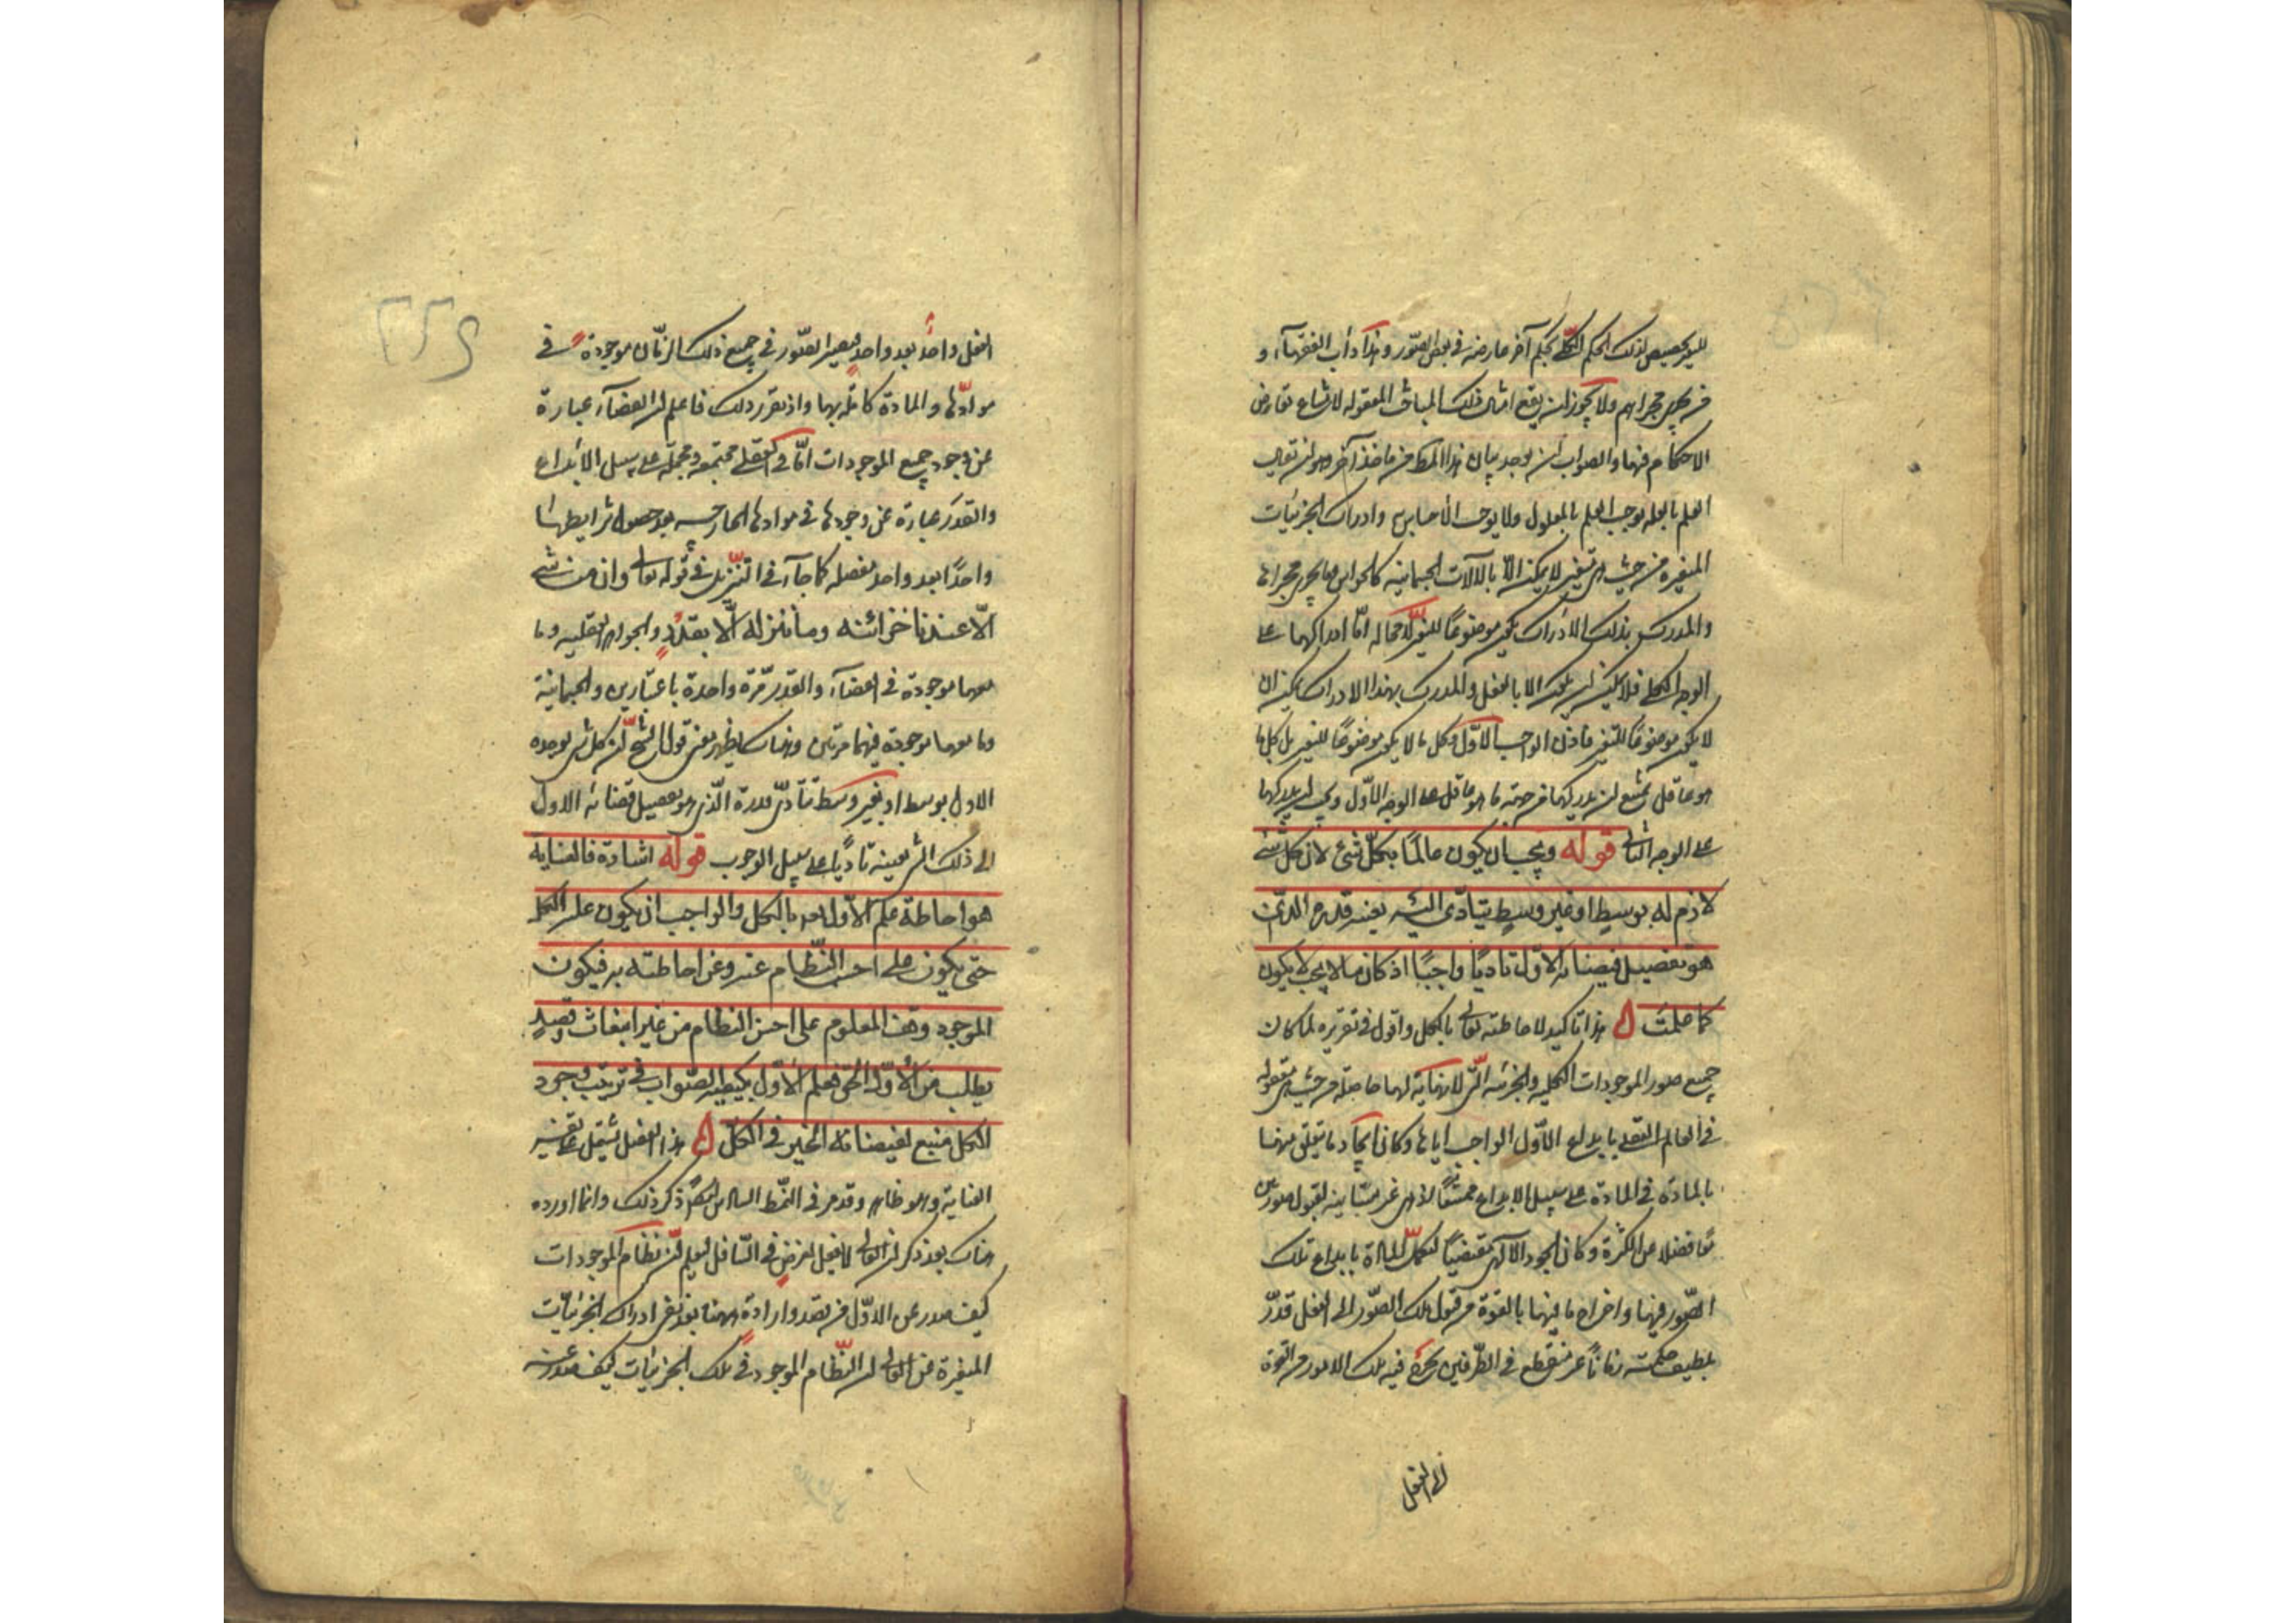 لتخصيص ذلك الحكم الكلي بحكم آخر عارضه في بعض الصور وهذا دأب الفقهاء و
من يجري مجراهم ولا يجوز ان يقع امثال ذلك في المباحث المعقوله لامتناع تعارض
الاحكام فيها والصواب ان يوجد بيان هذا المطلب من مأخذ آخر وهو ان يقال
العلم بالعله يوجب العلم بالمعلول ولا يوجب الاحساس به وادراك الجزئيات
المتغيره من حيث هي متغيره لا يمكن الا بالآلات الجسمانيه كالحواس وما يجري مجراها
والمدرك بذلك الادراك يكون موضوعًا للتغير لا محاله اما ادراكها على
الوجه الكلي فلا يمكن ان يدرك الا بالعقل والمدرك بهذا الادراك يمكن ان
لا يكون موضوعًا للتغير فاذن الواجب الاول وكل ما لا يكون موضوعًا للتغير بل كل ما
هو عاقل يمتنع ان يدركها من جهة ما هو عاقل على الوجه الاول ويجب ان يدركها
على الوجه الثاني قوله ويجب ان يكون عالمًا بكلّ شئ لان كل شئ
لازم له بوسط او غير وسط يتأدّى اليه بعينه قدره الذى
هو تفصيل قضائه الاول تأديًا واجبًا اذ كان ما لا يجب لا يكون
كما علمتَ هذا تاكيد لاحاطته تعالى بالكل واقول في تقريره لما كان
جميع صور الموجودات الكليه والجزئيه التي لا نهاية لها حاصله من حيث هي معقوله
في العالم العقلي بابداع الاول الواجب اياها وكان ايجاد ما يتعلق منها
بالمادة في المادة على سبيل الابداع ممتنعًا اذ هي غير متأتيه لقبول صورتين
معًا فضلا عن الكثرة وكان الجود الالهى مقتضيًا لتكميل المادة بابداع تلك
الصور فيها واخراج ما فيها بالقوة من قبول تلك الصور الى الفعل قدر
بلطيف حكمته زمانًا غير منقطع في الطرفين يخرج فيه تلك الامور من القوة
الى الفعل
٢٢٤
الفعل واحدًا بعد واحد فيصير الصور في جميع ذلك الزمان موجودة في
موادها والمادة كاملة بها واذ تقرر ذلك فاعلم ان القضاء عبارة
عن وجود جميع الموجودات في العالم العقلي مجتمعة ومجملة على سبيل الابداع
والقدر عبارة عن وجودها في موادها الخارجيه بعد حصول شرايطها
واحدًا بعد واحد مفصله كما جاء في التنزيل في قوله تعالى وان من شئ
الّا عندنا خزائنه وما ننزله الّا بقدر والجواهر العقليه وما
معها موجودة في القضاء والقدر مرة واحدة باعتبارين والجسمانية
وما معها موجودة فيهما مرتين وهناك يظهر معنى قول الشيخ ان كل شئ يوجده
الاول بوسط او بغير وسط يتأدى قدره الذي هو تفصيل قضائه الاول
الى ذلك الشئ بعينه تأديًا على سبيل الوجوب قوله اشارة فالعناية
هو احاطة علم الاول بالكل والواجب ان يكون عليه الكل
حتى يكون على احسن النظام عنه وعن احاطته به فيكون
الموجود وفق المعلوم على احسن النظام من غير انبعاث قصد
وطلب من الاول الحق فعلم الاول بكيفيه الصواب في ترتيب وجود
الكل منبع لفيضان الخير في الكل هذا الفصل يشتمل على تفسير
العناية وهو ظاهر وقد مر في النمط السادس ذكر ذلك وانما اورده
هناك بعد ذكر ان العالى لا يفعل لغرض في السافل ليعلم ان نظام الموجودات
كيف صدر عن الاول من غير قصد وارادة وههنا بعد نفي ادراك الجزئيات
المتغيرة عن العالى ان النظام الموجود في تلك الجزئيات كيف صدر عنه